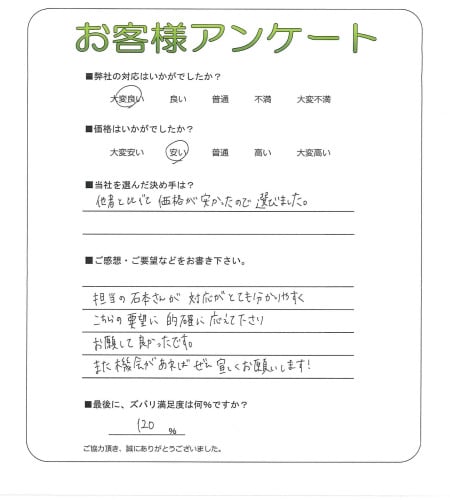 お客様アンケート
■弊社の対応はいかがでしたか？
大変良い 良い 普通 不満 大変不満
■価格はいかがでしたか？
大変安い 安い 普通 高い 大変高い
■当社を選んだ決め手は？
他者と比べて 価格が安かったので 選びました。
■ご感想・ご要望などをお書き下さい。
担当の石本さんが 対応がとても分かりやすく
こちらの要望に 的確に 応えて下さり
お願いして良かったです。
また機会があれば ぜひ 宜しくお願いします!
■最後に、ズバリ満足度は何%ですか？
120 %
ご協力頂き、誠にありがとうございました。